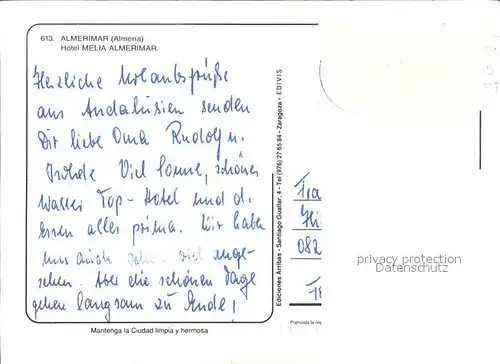 613. ALMERIMAR (Almería)
Hotel MELIA ALMERIMAR.
Herzliche Urlaubsgrüße
aus Andalusien senden
Dir liebe Oma Rudolf u.
Viel Sonne, schönes
Wasser Top-Hotel und d.
Essen alles prima. Wir haben
uns auch schon viel ange-
sehen. Aber die schönen Tage
gehen langsam zu Ende,
Mantenga la Ciudad limpia y hermosa
Ediciones Arribas - Santiago Guallar, 4 - Tel (976) 27 65 84 - Zaragoza - EDIVIS
082
privacy protection
Datenschutz